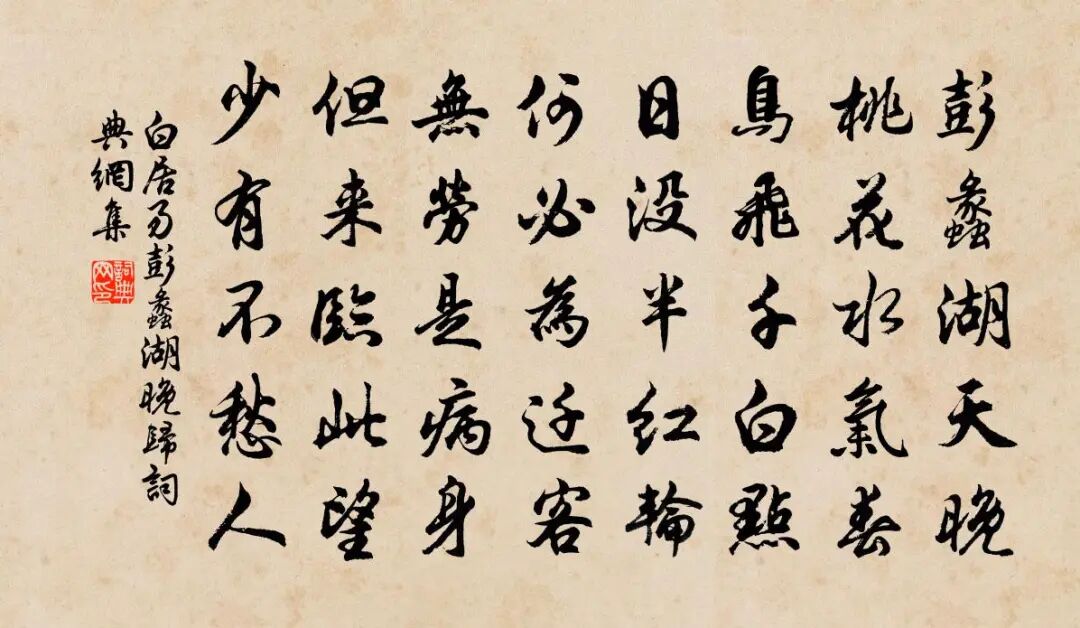 彭蠡湖天晚
桃花水氣春
鳥飛千白點
日没半紅輪
何必為遷客
無勞是病身
但来臨此望
少有不愁人
白居易彭蠡湖晚歸詞
典網集
詞典
网印